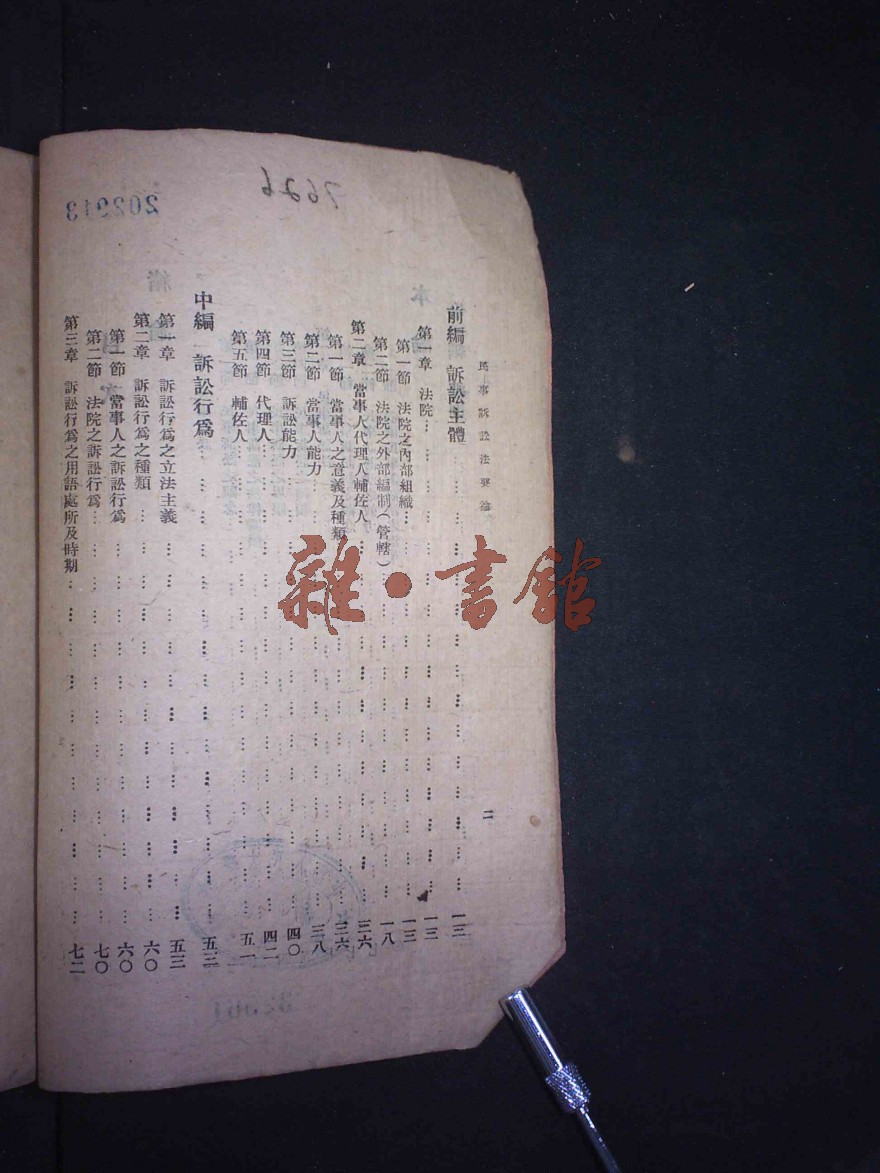 民事訴訟法要論
二
前編 訴訟主體……一三
第一章 法院……一三
第一節 法院之內部組織……一三
第二節 法院之外部編制（管轄）……一八
第二章 當事人代理人輔佐人……三六
第一節 當事人之意義及種類……三六
第二節 當事人能力……三八
第三節 訴訟能力……四〇
第四節 代理人……四二
第五節 輔佐人……五一
中編 訴訟行爲……五三
第一章 訴訟行爲之立法主義……五三
第二章 訴訟行爲之種類……六〇
第一節 當事人之訴訟行爲……六〇
第二節 法院之訴訟行爲……七〇
第三章 訴訟行爲之用語處所及時期……七二
雜·書館
202913